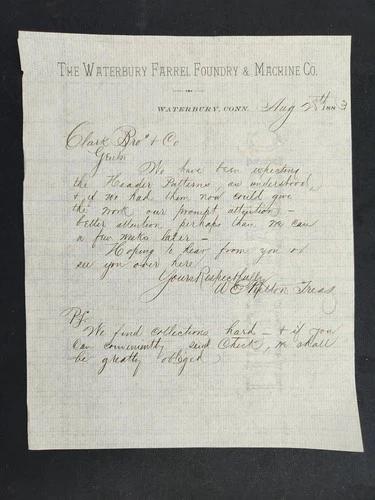 THE WATERBURY FARREL FOUNDRY & MACHINE CO.
WATERBURY, CONN. Aug 1883
Clark Bros & Co
Gentn
We have been expecting
the Header Patterns, as understood,
& if we had them now could give
the work our prompt attention -
better attention perhaps than we can
a few weeks later -
Hoping to hear from you or
see you over here
Yours Respectfully
Treas
PS.
We find collections hard - & if you
can conveniently send Check, we shall
be greatly obliged